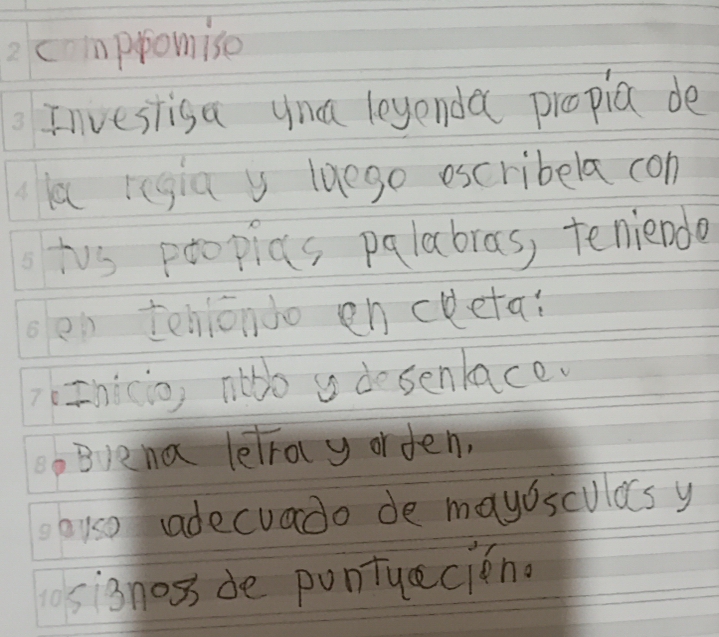 compromiso
Investiga una leyenda propia de
la regia y luego escribela con
tus poopias palabras, teniendo
en teniondo en cueta:
Inicio, nudo y desenlace.
Buena letra y orden.
uso adecuado de mayúsculas y
signos de puntuación.